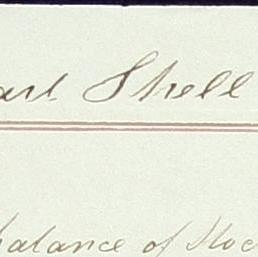 Shell
balance of Stoc